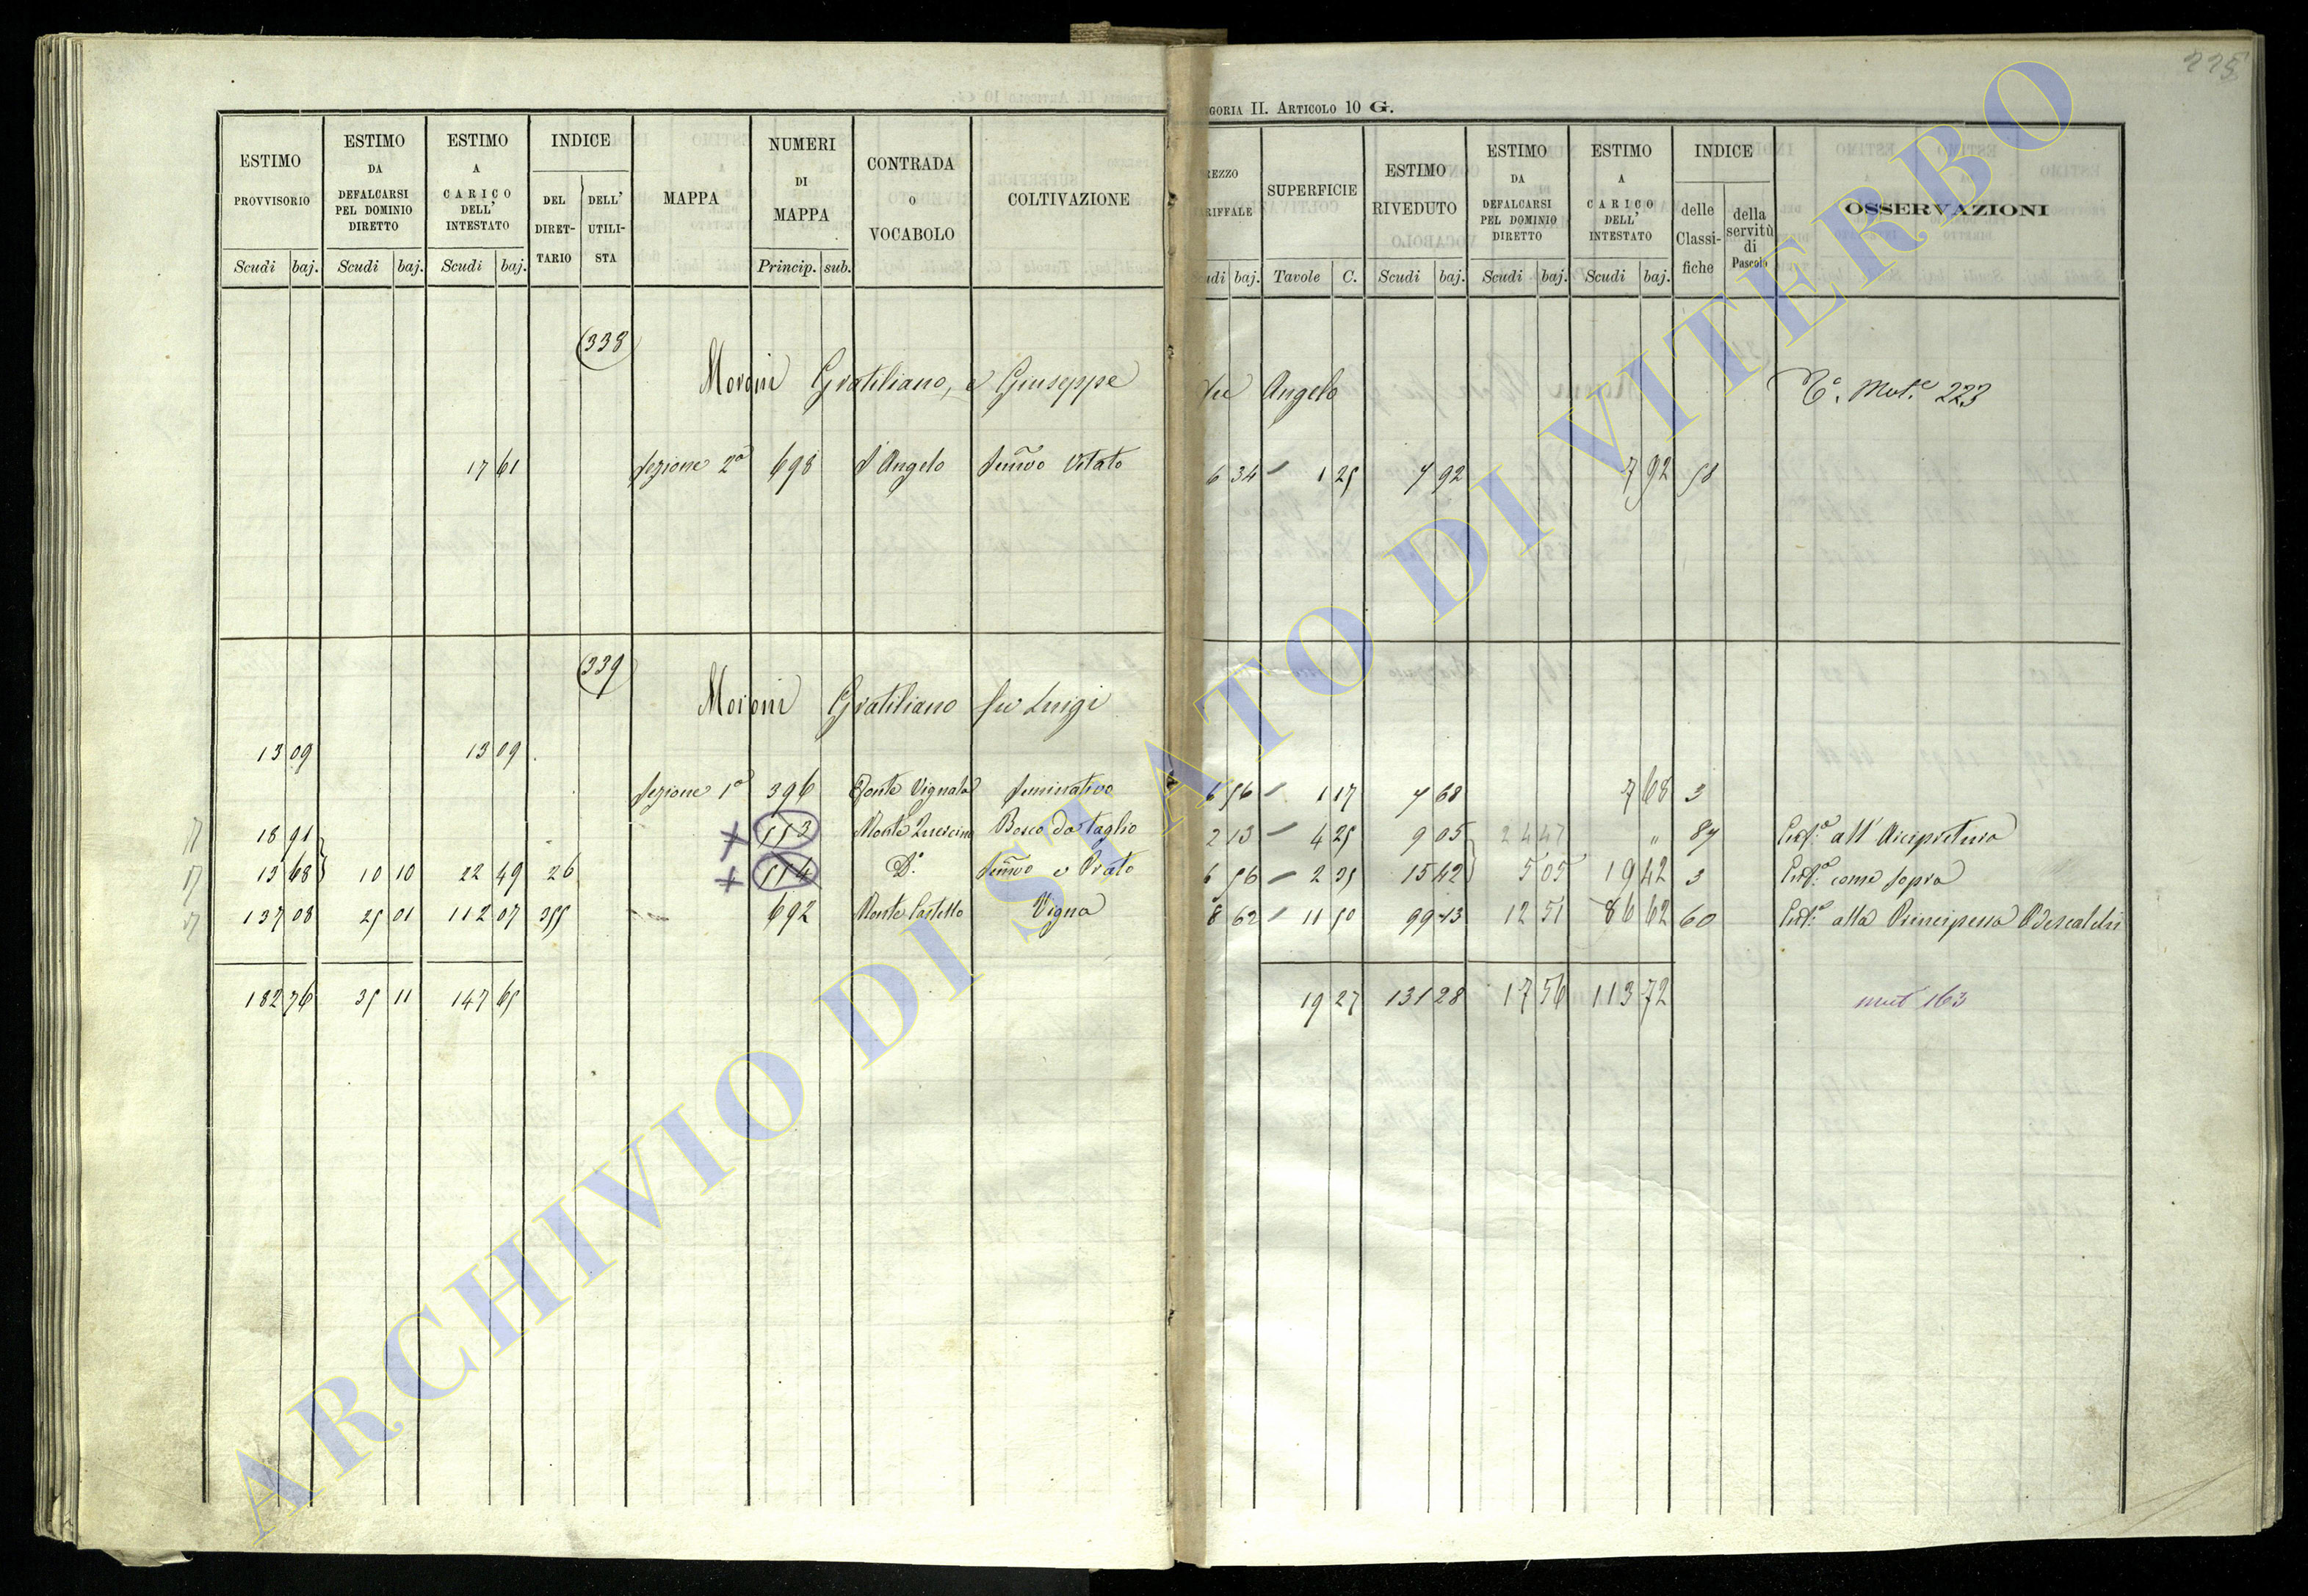 225
GORIA II. ARTICOLO 10 G.
ESTIMO PROVVISORIO Scudi baj.
ESTIMO DA DEFALCARSI PEL DOMINIO DIRETTO Scudi baj.
ESTIMO A CARICO DELL' INTESTATO Scudi baj.
INDICE DEL DIRET-TARIO DELL' UTILI-STA
MAPPA
NUMERI DI MAPPA Princip. sub.
CONTRADA O VOCABOLO
COLTIVAZIONE
REZZO ARIFFALE udi baj.
SUPERFICIE Tavole C.
ESTIMO RIVEDUTO Scudi baj.
ESTIMO DA DEFALCARSI PEL DOMINIO DIRETTO Scudi baj.
ESTIMO A CARICO DELL' INTESTATO Scudi baj.
INDICE delle Classi-fiche della servitù di Pascolo
OSSERVAZIONI
338
Moroni Gratiliano, e Giuseppe fu Angelo N.º Mut.e 223
17 61 Sezione 2a 698 S Angelo Semvo Vitato 6 34 1 25 7 92 7 92 58
339
Moroni Gratiliano fu Luigi
13 09 13 09
Sezione 1a 396 Fonte Vignala Seminativo 6 56 1 17 7 68 7 68 3
18 91 113 Monte Quercino Bosco da taglio 2 13 4 25 9 05 24 47 " 87 Enf.a all' Arcipretura
13 68 10 10 22 49 26 114 D.º Semvo e Prato 6 56 2 35 15 42 5 05 19 42 3 Enf.a come sopra
137 08 25 01 112 07 355 692 Monte Castello Vigna 8 62 11 50 99 13 12 51 86 62 60 Enf.a alla Principessa Odescalchi
182 76 35 11 147 65 19 27 131 28 17 56 113 72 mut 163
ARCHIVIO DI STATO DI VITERBO